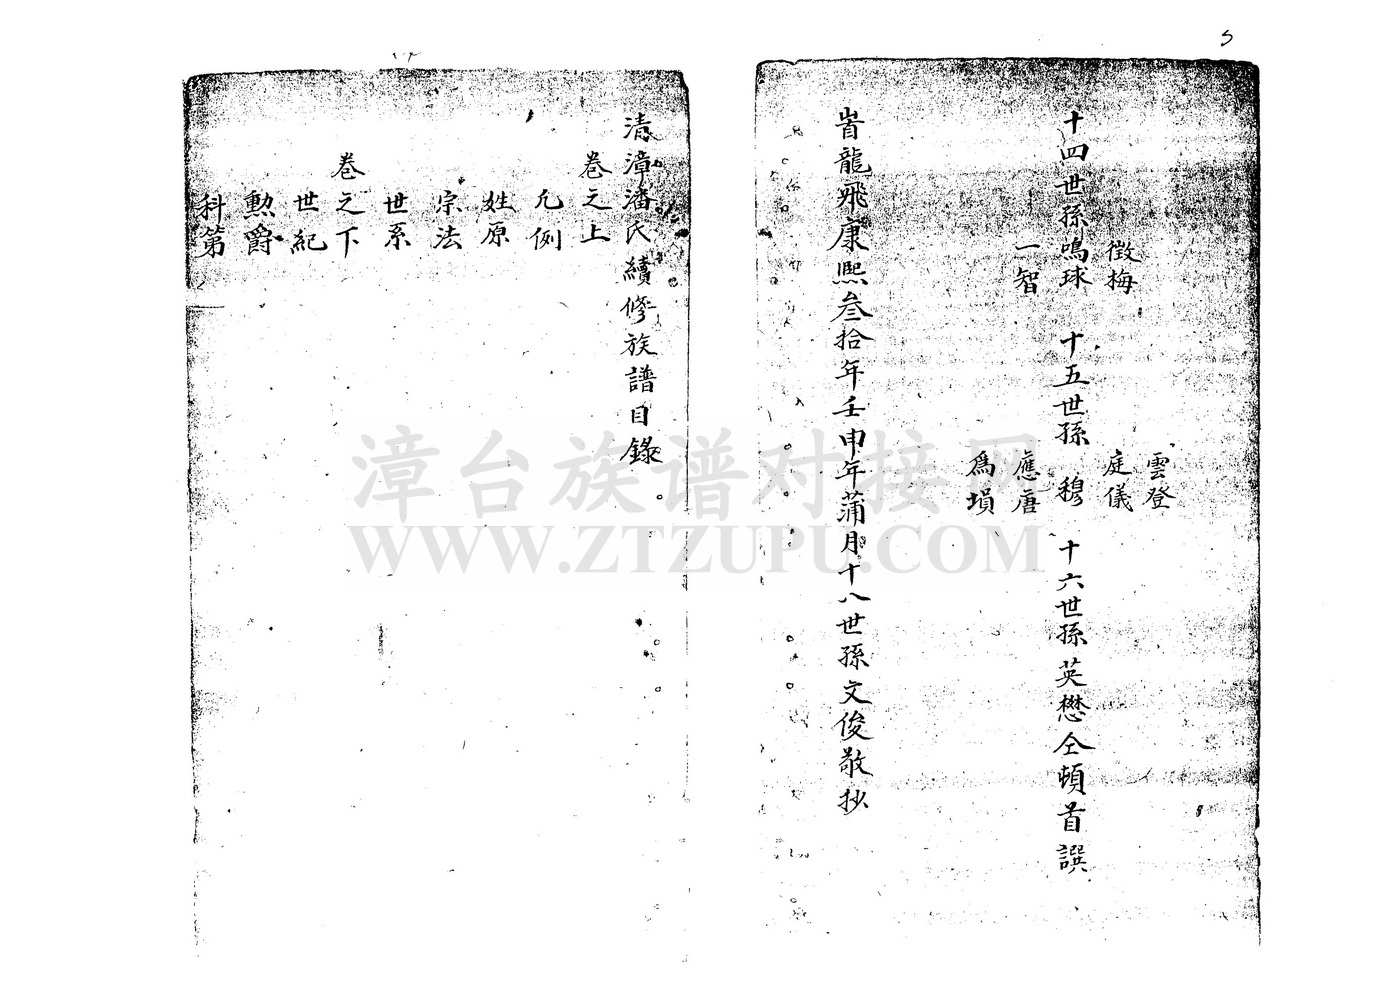 5
雲登
徵梅
庭儀
十四世孫鳴球 十五世孫 穆 十六世孫英懋仝頓首譔
一智
應唐
為塤
旹龍飛康熙叁拾年壬申年蒲月十八世孫文俊敬抄
清漳潘氏續修族譜目錄
卷之上
凡例
姓原
宗法
世系
卷之下
世紀
勲爵
科第
漳台族谱对接网
WWW.ZTZUPU.COM